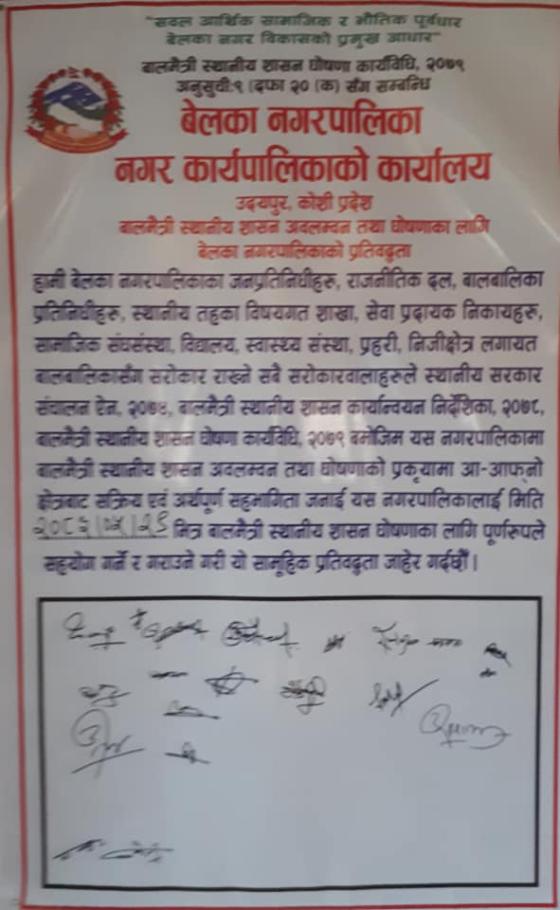 "सवल आर्थिक सामाजिक र भौतिक पूर्वधार
बेलका नगर विकासको प्रमुख आधार"
बालमैत्री स्थानीय शासन घोषणा कार्यविधि, २०७९
अनुसुची:१ (दफा २० (क) सँग सम्बन्धि
बेलका नगरपालिका
नगर कार्यपालिकाको कार्यालय
उदयपुर, कोशी प्रदेश
बालमैत्री स्थानीय शासन अवलम्वन तथा घोषणाका लागि
बेलका नगरपालिकाको प्रतिवद्दता
हामी बेलका नगरपालिकाका जनप्रतिनिधीहरू, राजनीतिक दल, बालबालिका
प्रतिनिधीहरू, स्थानीय तहका विषयगत शाखा, सेवा प्रदायक निकायहरू,
सामाजिक संघसंस्था, विद्यालय, स्वास्थ्य संस्था, प्रहरी, निजीक्षेत्र लगायत
बालबालिकासँग सरोकार राख्ने सबै सरोकारवालाहरूले स्थानीय सरकार
संचालन ऐन, २०७४, बालमैत्री स्थानीय शासन कार्यान्वयन निर्देशिका, २०७८,
बालमैत्री स्थानीय शासन घोषणा कार्यविधि, २०७९ बमोजिम यस नगरपालिकामा
बालमैत्री स्थानीय शासन अवलम्वन तथा घोषणाको प्रकृयामा आ-आफ्नो
क्षेत्रबाट सक्रिय एवं अर्थपूर्ण सहभागिता जनाई यस नगरपालिकालाई मिति
भित्र बालमैत्री स्थानीय शासन घोषणाका लागि पूर्णरूपले
सहयोग गर्ने र गराउने गरी यो सामूहिक प्रतिवद्दता जाहेर गर्दछौं ।